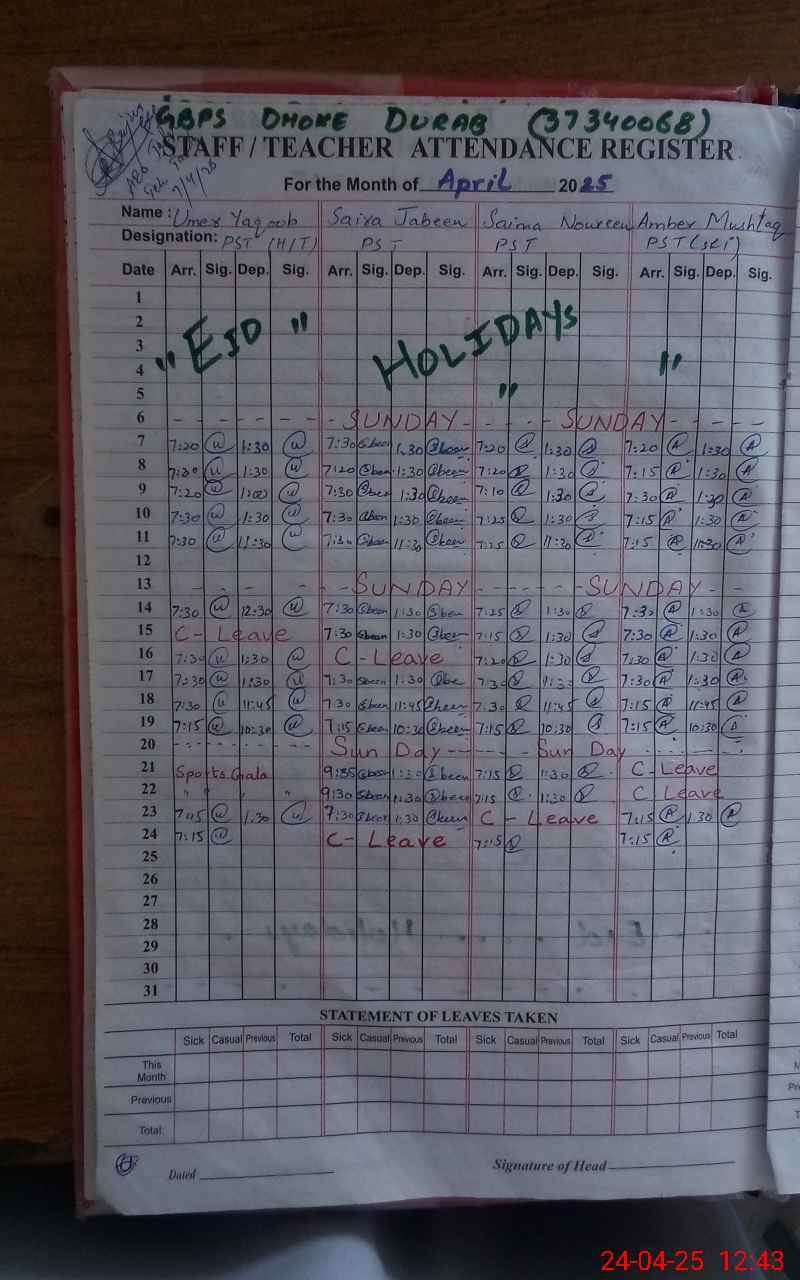 GBPS DHOKE DURAB (37340068)
STAFF / TEACHER ATTENDANCE REGISTER
For the Month of April 2025
7/4/25
Name : Umer Yaqoob Saira Jabeen Saima Noureen Amber Mushtaq
Designation: PST (H/T) PST PST PST (SKI)
Date Arr. Sig. Dep. Sig. Arr. Sig. Dep. Sig. Arr. Sig. Dep. Sig. Arr. Sig. Dep. Sig.
1
2
3
4
5
" EID " HOLIDAYS " "
6 - - - - - - SUNDAY - - - SUNDAY - - - -
7 7:20 1:30 7:30 1:30 7:20 1:30 7:20 1:30
8 7:20 1:30 7:20 1:30 7:20 1:30 7:15 1:30
9 7:20 1:00 7:30 1:30 7:10 1:30 7:30 1:30
10 7:30 1:30 7:30 1:30 7:25 1:30 7:15 1:30
11 7:30 11:30 7:30 11:30 7:25 11:30 7:15 11:30
12
13 - - - - - SUNDAY - - - - - - SUNDAY - -
14 7:30 12:30 7:30 1:30 7:25 1:30 7:30 1:30
15 C - Leave 7:30 1:30 7:15 1:30 7:30 1:30
16 7:30 1:30 C - Leave 7:20 1:30 7:30 1:30
17 7:30 1:30 7:30 1:30 7:30 1:30 7:30 1:30
18 7:30 11:45 7:30 11:45 7:30 11:45 7:15 11:45
19 7:15 10:30 7:15 10:30 7:15 10:30 7:15 10:30
20 - - - - - - - - Sun Day - - - - - Sun Day - - - - -
21 Sports Gala 9:35 1:30 7:15 1:30 C - Leave
22 " " " " 9:30 1:30 7:15 1:30 C - Leave
23 7:15 1:30 7:30 1:30 C - Leave 7:15 1:30
24 7:15 C - Leave 7:15 7:15
25
26
27
28
29
30
31
STATEMENT OF LEAVES TAKEN
Sick Casual Previous Total Sick Casual Previous Total Sick Casual Previous Total Sick Casual Previous Total
This Month
Previous
Total:
Dated Signature of Head
24-04-25 12:43